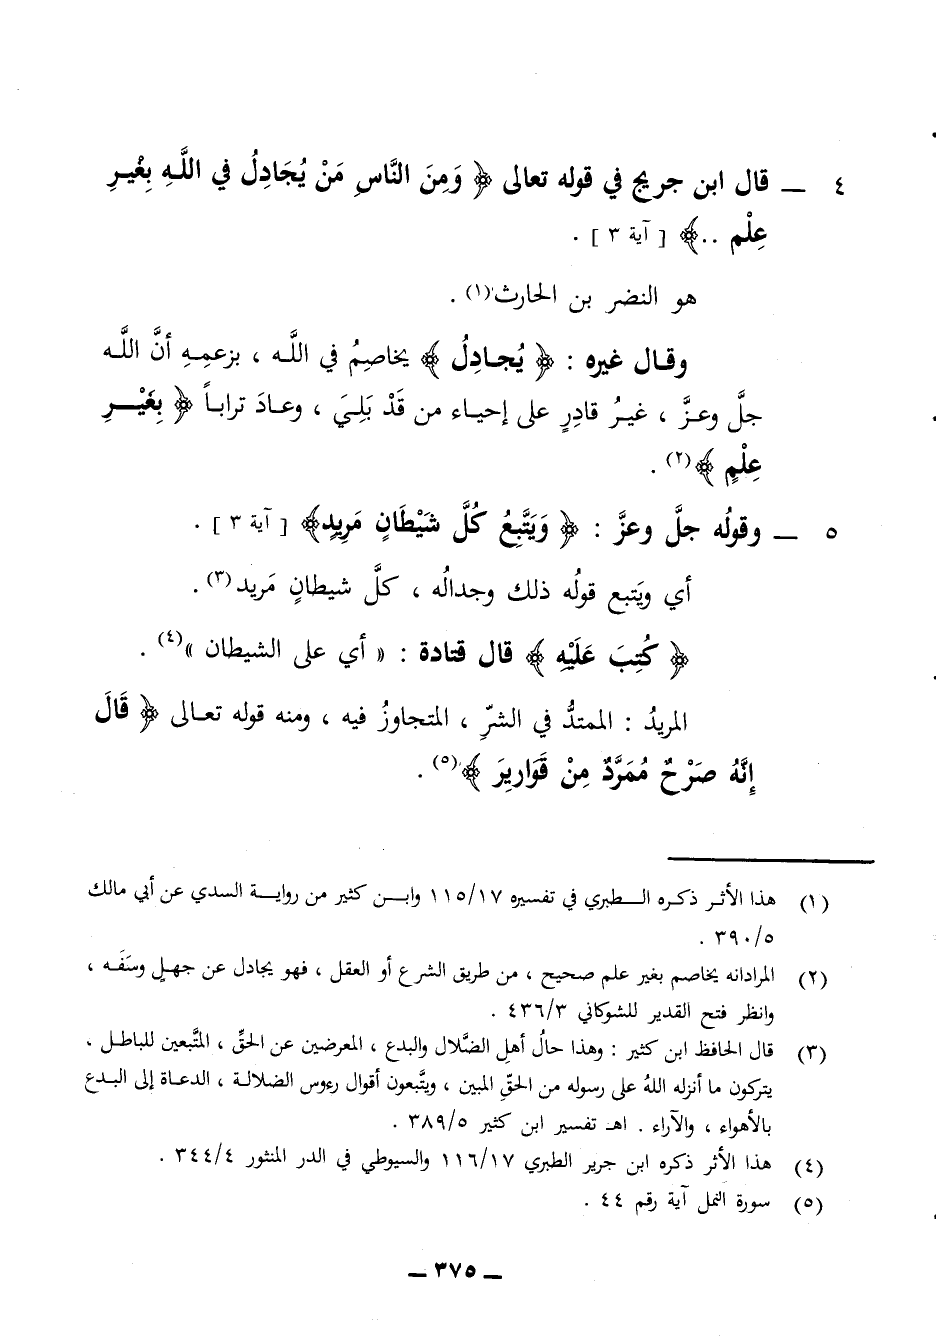 ٤ ــ قال ابن جريج في قوله تعالى ﴿ وَمِنَ النَّاسِ مَنْ يُجَادِلُ في اللَّهِ بِغْيرِ
عِلْمٍ ..﴾ [ آية ٣ ] .
هو النضر بن الحارث(١) .
وقال غيره : ﴿ يُجادِلُ ﴾ يخاصِمُ في اللَّه ، بزعمِهِ أنَّ اللَّه
جلَّ وعزَّ ، غيرُ قادِرٍ على إحياء من قَدْ بَلِيَ ، وعادَ تراباً ﴿ بِغَيْرِ
عِلْمٍ ﴾(٢) .
٥ ــ وقولُه جلَّ وعزَّ : ﴿ وَيَتَّبِعُ كُلَّ شَيْطَانٍ مَرِيدٍ﴾ [ آية ٣ ] .
أي ويَتبع قولُه ذلك وجدالُه ، كلَّ شيطانٍ مَريد(٣) .
﴿ كُتِبَ عَلَيْهِ ﴾ قال قتادة : « أي على الشيطان »(٤) .
المريدُ : الممتدُّ في الشرِّ ، المتجاوزُ فيه ، ومنه قوله تعالى ﴿ قَالَ
إِنَّهُ صَرْحٌ مُمَرَّدٌ مِنْ قَوَارِيرَ ﴾(٥) .
(١) هذا الأثر ذكره الطبري في تفسيره ١١٥/١٧ وابن كثير من رواية السدي عن أبي مالك
٣٩٠/٥ .
(٢) المرادانه يخاصم بغير علم صحيح ، من طريق الشرع أو العقل ، فهو يجادل عن جهلٍ وسَفَه ،
وانظر فتح القدير للشوكاني ٤٣٦/٣ .
(٣) قال الحافظ ابن كثير : وهذا حالُ أهلِ الضَّلال والبدع ، المعرضين عن الحقِّ ، المتَّبعين للباطل ،
يتركون ما أنزله اللهُ على رسوله من الحقِّ المبين ، ويتَّبعون أقوال رءوس الضلالة ، الدعاة إلى البدع
بالأهواء ، والآراء . اهـ تفسير ابن كثير ٣٨٩/٥ .
(٤) هذا الأثر ذكره ابن جرير الطبري ١١٦/١٧ والسيوطي في الدر المنثور ٣٤٤/٤ .
(٥) سورة النمل آية رقم ٤٤ .
ــ ٣٧٥ ــ